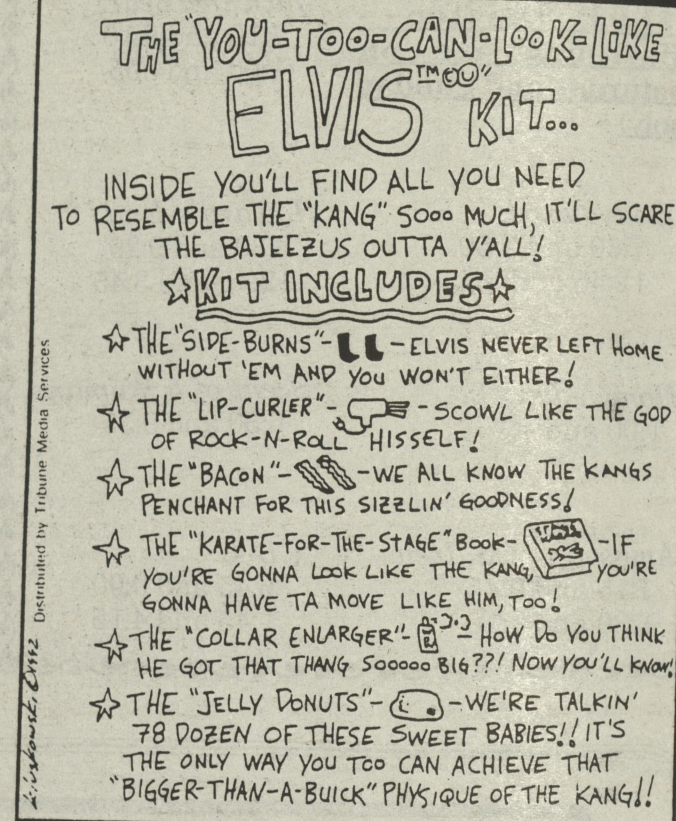 THE "YOU-TOO-CAN-LOOK-LIKE
ELVIS™©" KIT...
INSIDE YOU'LL FIND ALL YOU NEED
TO RESEMBLE THE "KANG" SOOO MUCH, IT'LL SCARE
THE BAJEEZUS OUTTA Y'ALL!
☆KIT INCLUDES☆
☆ THE "SIDE-BURNS"- - ELVIS NEVER LEFT HOME
WITHOUT 'EM AND YOU WON'T EITHER!
☆ THE "LIP-CURLER"- - SCOWL LIKE THE GOD
OF ROCK-N-ROLL HISSELF!
☆ THE "BACON"- -WE ALL KNOW THE KANGS
PENCHANT FOR THIS SIZZLIN' GOODNESS!
☆ THE "KARATE-FOR-THE-STAGE" BOOK- -IF
YOU'RE GONNA LOOK LIKE THE KANG, YOU'RE
GONNA HAVE TA MOVE LIKE HIM, TOO!
☆ THE "COLLAR ENLARGER"- - HOW DO YOU THINK
HE GOT THAT THANG SOOOOO BIG??! NOW YOU'LL KNOW!
☆ THE "JELLY DONUTS"- -WE'RE TALKIN'
78 DOZEN OF THESE SWEET BABIES!! IT'S
THE ONLY WAY YOU TOO CAN ACHIEVE THAT
"BIGGER-THAN-A-BUICK" PHYSIQUE OF THE KANG!!
©1992 Distributed by Tribune Media Services